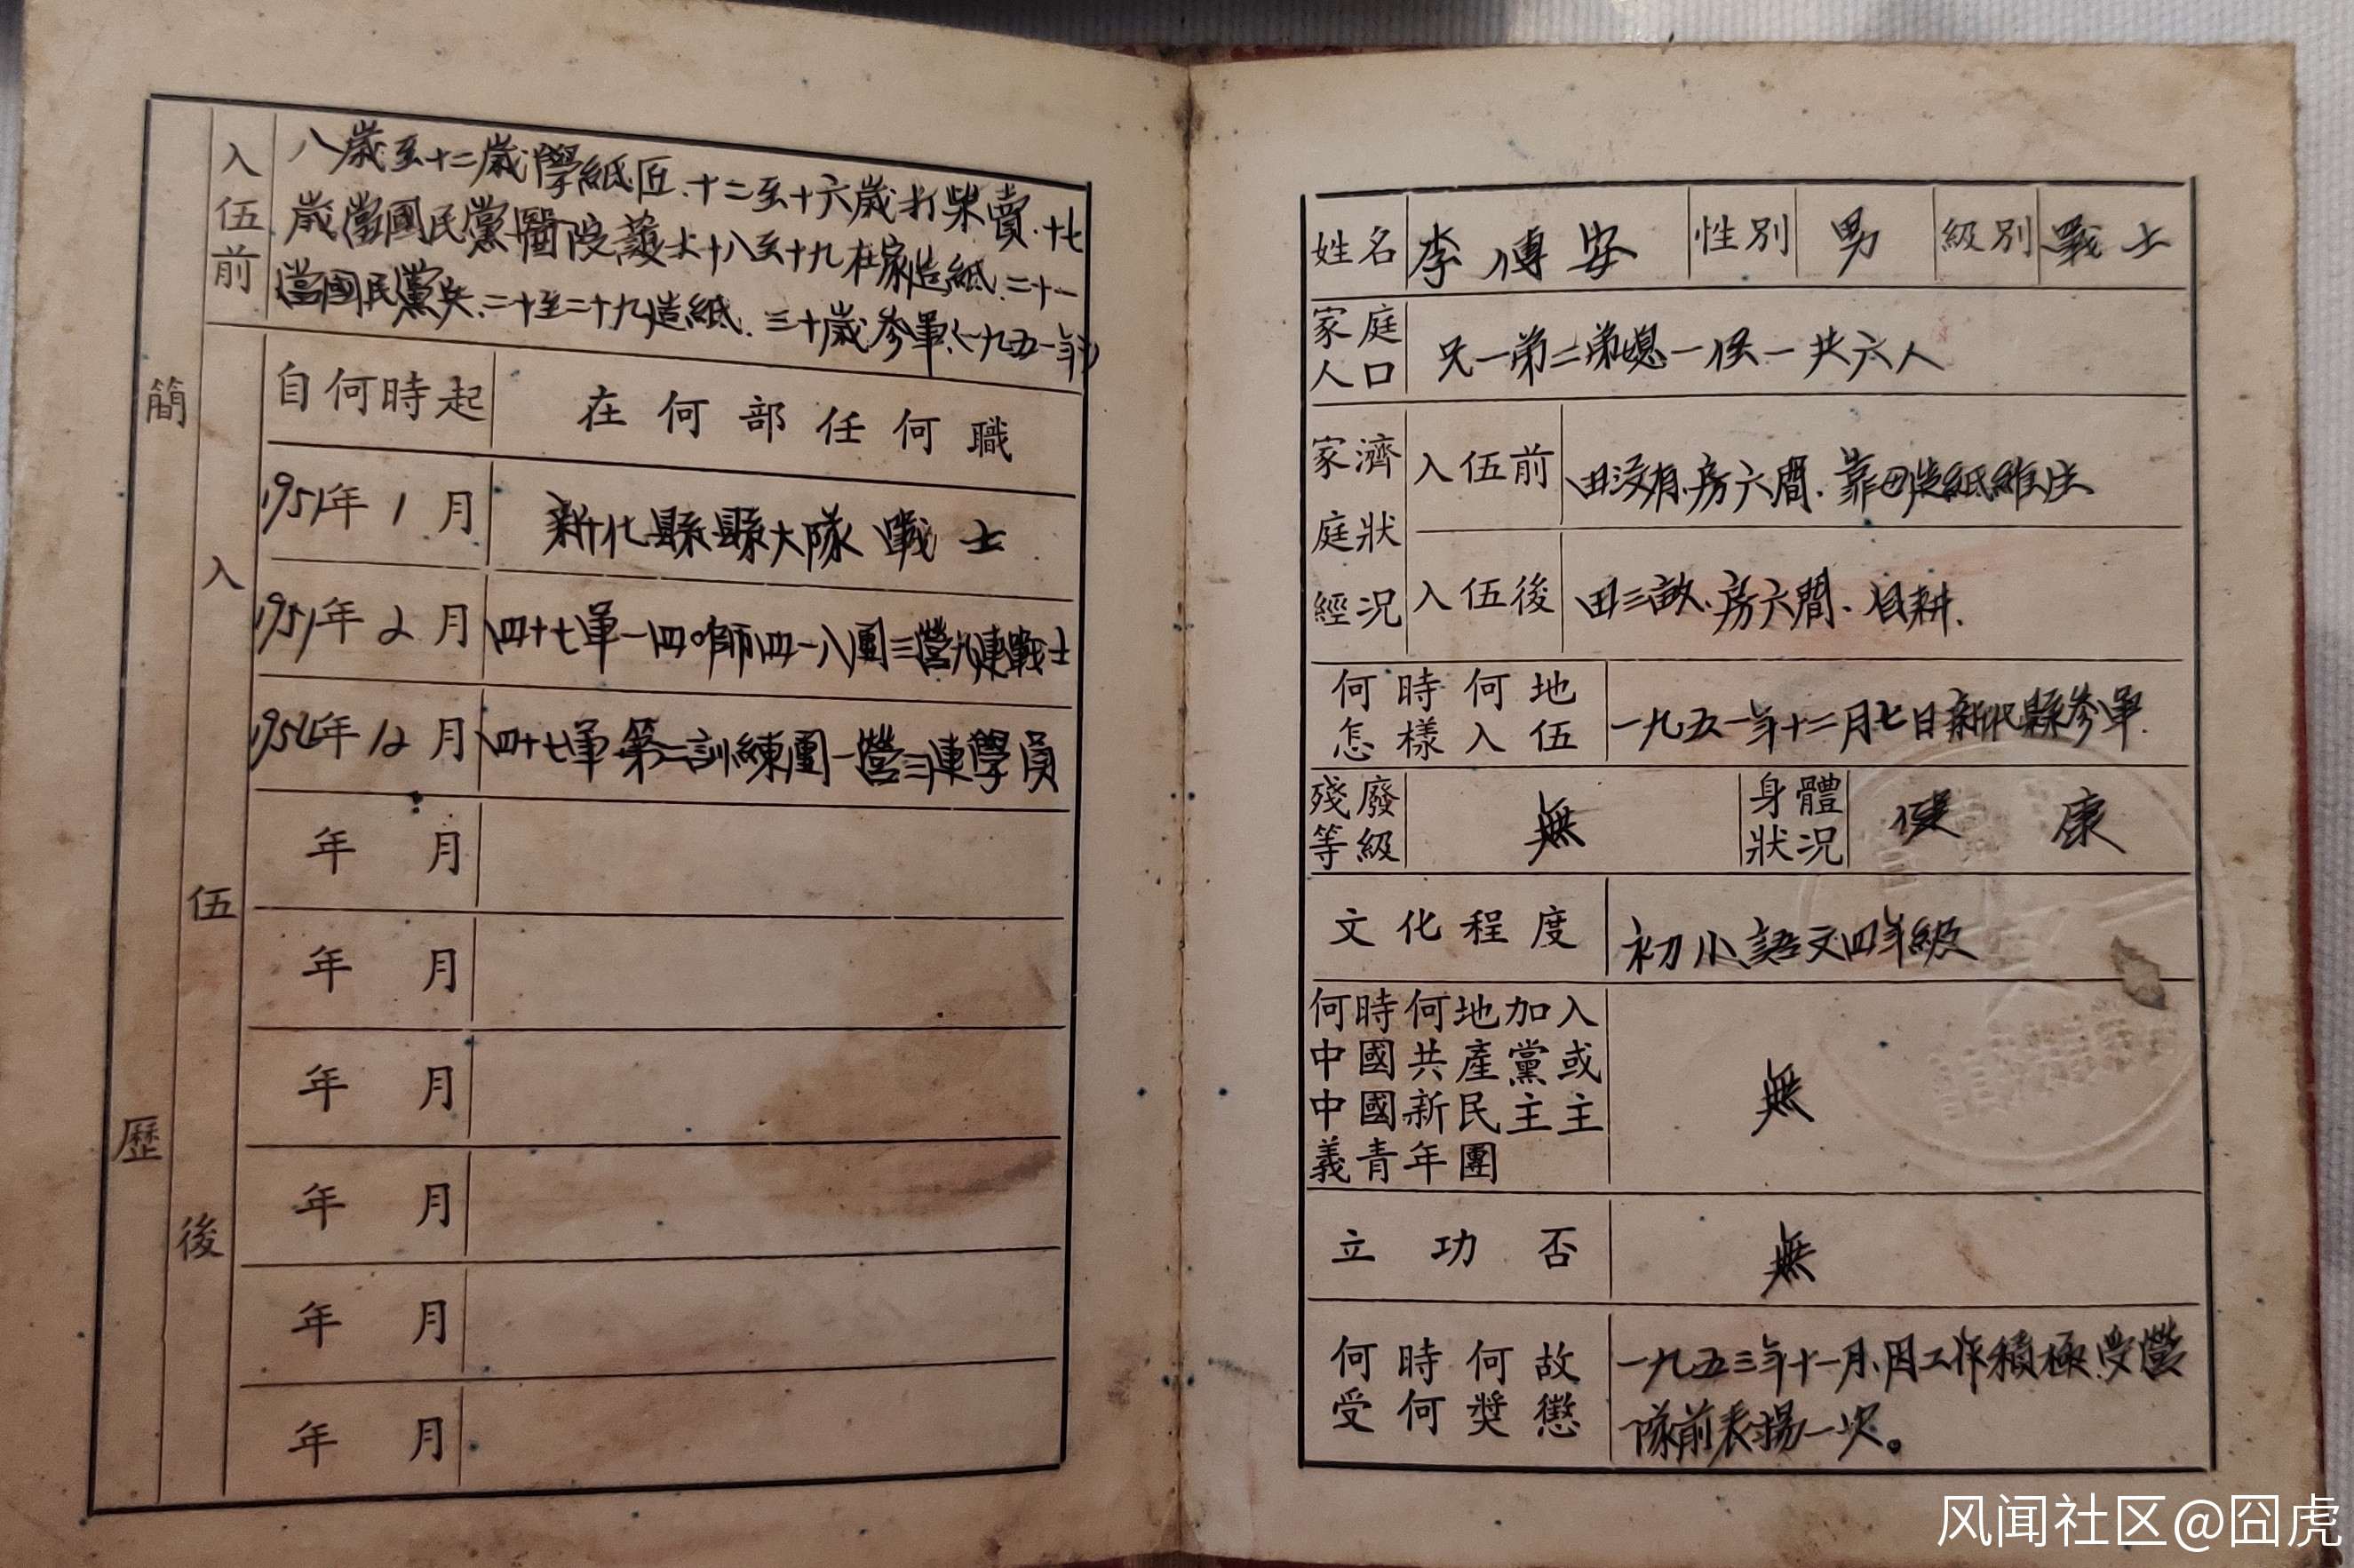 簡歷
入伍前
八歲至十二歲學紙匠.十二至十六歲打柴賣.十七
歲當國民黨醫院護士十八至十九在家造紙.二十一
當國民黨兵.二十至二十九造紙.三十歲參軍(一九五一年)
入伍後
自何時起 在何部任何職
1951年1月 新化縣縣大隊戰士
1951年2月 四十七軍一四〇師四一八團三營九連戰士
1954年12月 四十七軍第二訓練團一營三連學員
年 月
年 月
年 月
年 月
年 月
年 月
姓名 李傳安 性別 男 級別 戰士
家庭人口 兄一弟二弟媳一侄一共六人
家庭經濟狀况 入伍前 田沒有.房六間.靠造紙維生
入伍後 田三畝.房六間.自耕.
何時何地
怎樣入伍 一九五一年十二月七日新化縣參軍.
殘廢等級 無 身體狀況 健康
文化程度 初小語文四年級
何時何地加入
中國共產黨或
中國新民主主
義青年團 無
立功否 無
何時何故
受何獎懲 一九五三年十一月.因工作積極.受營
隊前表揚一次。
风闻社区@囧虎